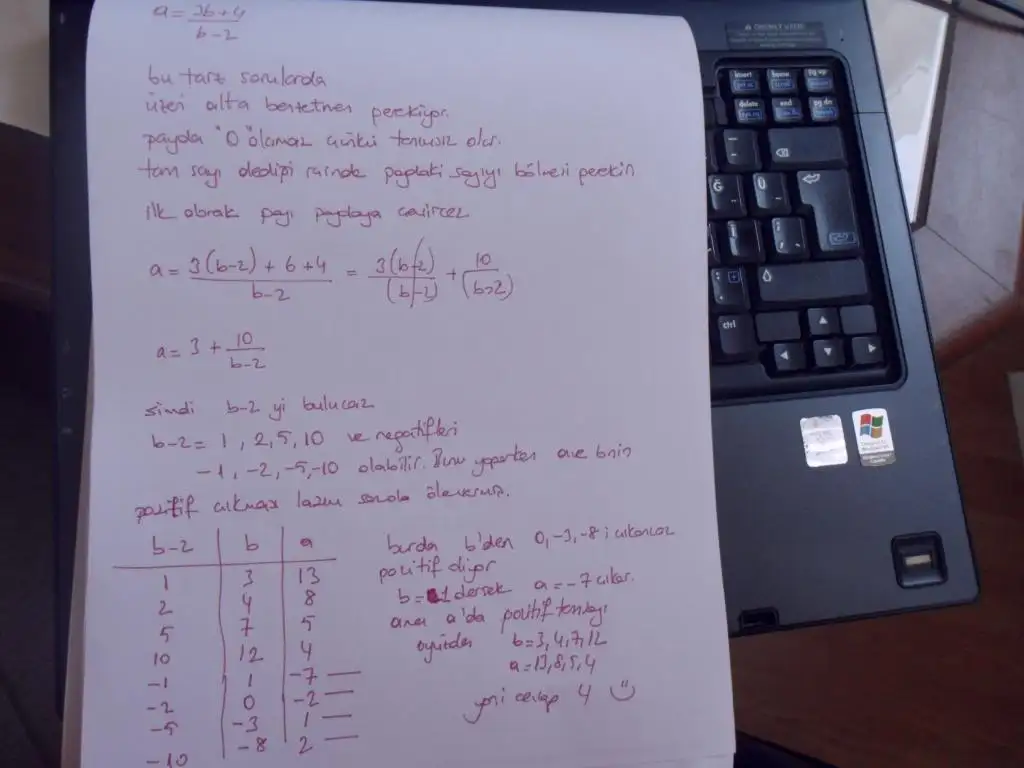 a = 3b+4 / b-2
bu tarz sorularda
üstü alta benzetmen gerekiyor.
payda "0" olamaz çünkü tanımsız olur.
tam sayı dediği paydaki sayıyı bölmesi gerekir
ilk olarak payı paydaya
a = 3(b-2) + 6 + 4 / b-2 = 3(b-2) / (b-2) + 10 / (b-2)
a = 3 + 10 / b-2
simdi b-2 yi bulucaz
b-2 = 1, 2, 5, 10 ve negatifleri
-1, -2, -5, -10 olabilir. Bunu yaparken a ve b'nin
pozitif çıkması lazım soruda
b-2 b a
1 3 13
2 4 8
5 7 5
10 12 4
-1 1 -7
-2 0 -2
-5 -3 1
-10 -8 2
burda b'den 0, -3, -8 i
pozitif diyor
b = 1 dersek a = -7 çıkar.
ama a'da pozitif
b = 3, 4, 7, 12
a = 13, 8, 5, 4
yani cevap 4
insert
home
pg up
delete
end
pg dn
Ğ Ü
ctrl